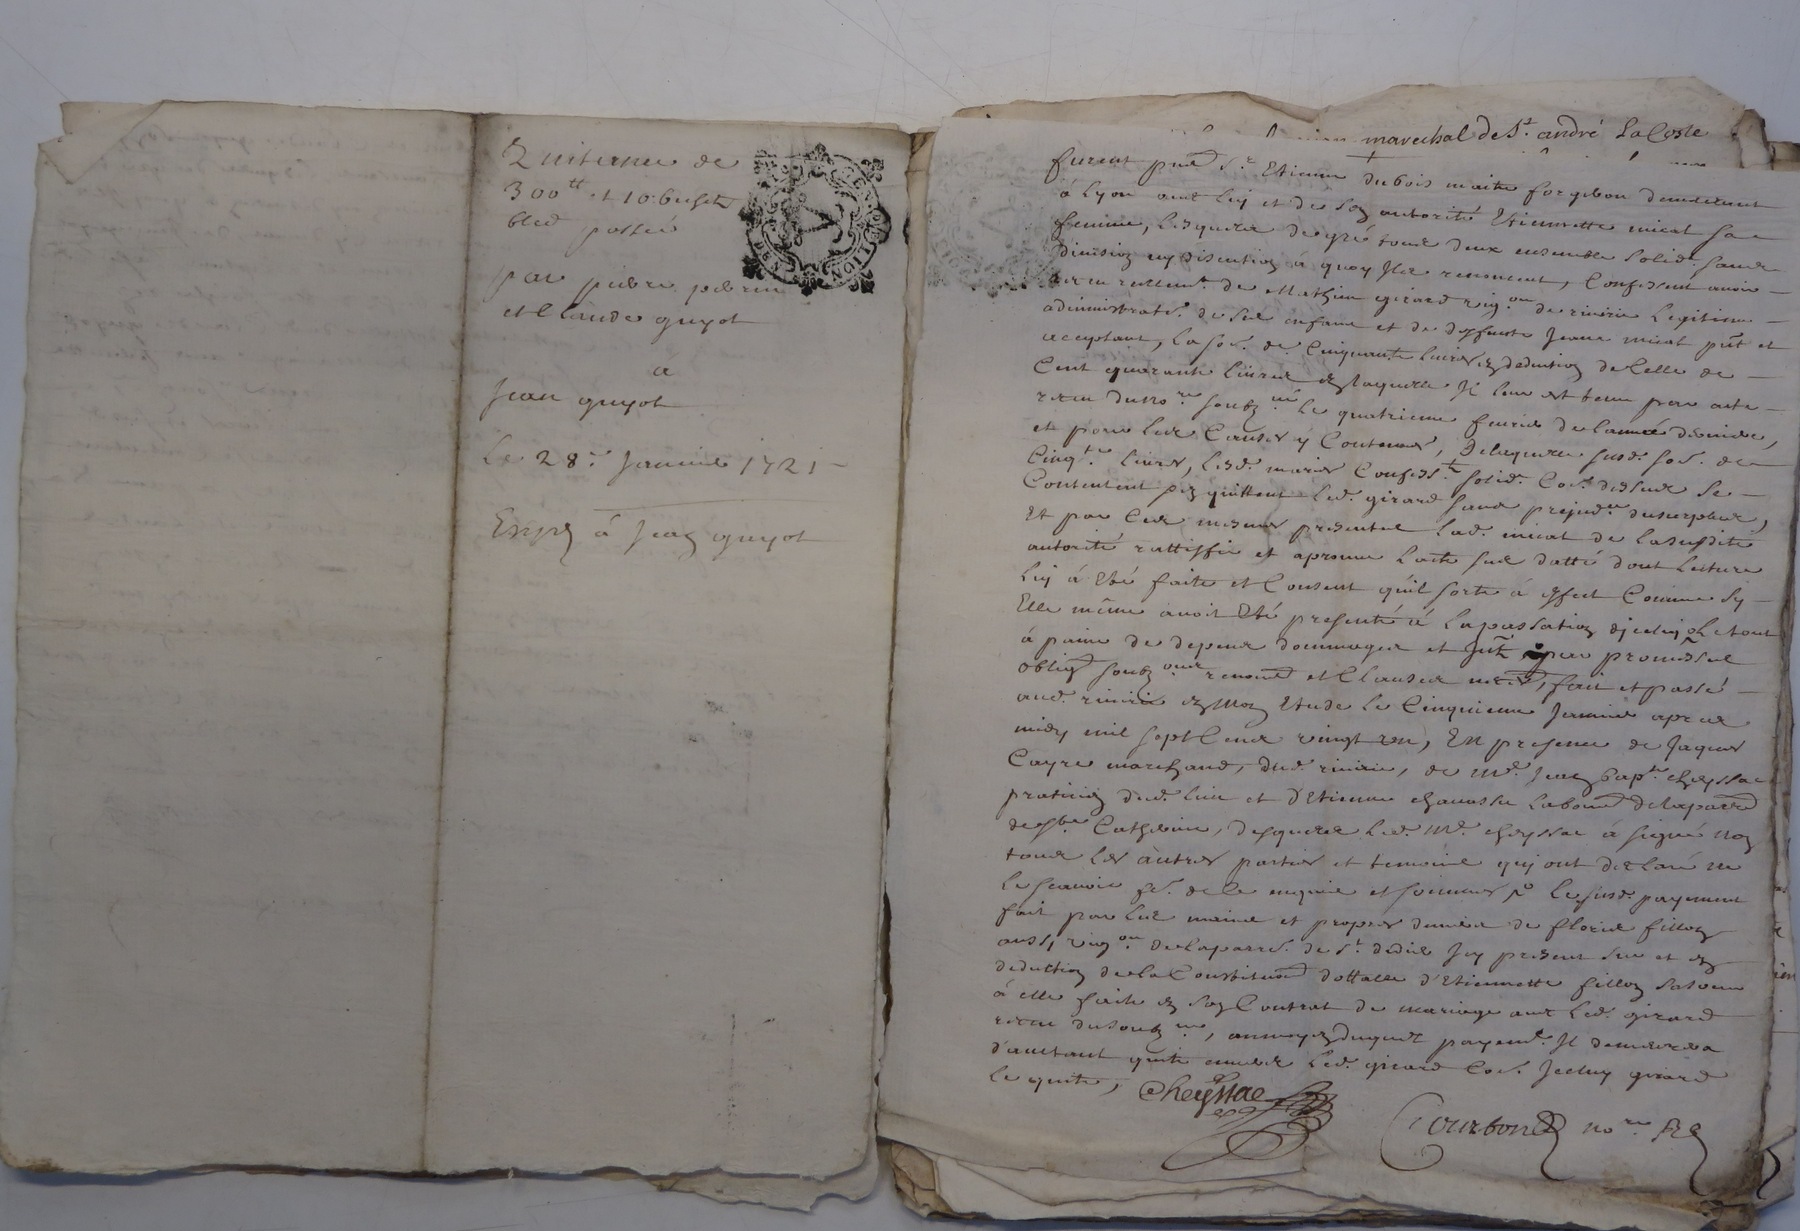 Quittance de
300tt et 10 bichets
bled passée
par pierre perrin
et Claude guyot
a
Jean guyot
Le 28e Janvier 1721
Expn à Jean guyot
marechal de St. andré La Coste
furent pnts Sr. Etienne dubois maitre forgeron demeurant
à Lyon et de Son autorité Etiennette micat sa
femme, Lesquels de gré tous deux ensemble solidt sans
division ny discution à quoy Ils renoncent, Confessent avoir
receu reellemt. de Mathieu girard vigon de riverie Legitime
administratr. de ses enfans et de deffunte Jeane micat pnt et
acceptant, La som. de Cinquante livres en deduction de Celle de
Cent quarante livres en laquelle Il leur est tenu par acte
receu du nore soubzné le quatrieme fevrier de l'année derniere,
et pour les Causes y Contenues, De laquelle susd. som. de
Cinqte livres, Lesd. mariés Confesst solidt. Coe. dessus se
Contentent et en quittent Led. girard sans prejudce du surplus,
Et par Ces mesmes presentes Lad. micat de La susditte
autorité rattiffie et aprouve L'acte sus datté dont Lecture
Luy à Eté faite et Consent qu'il sorte à effect Comme sy
Elle même avoit Eté presente à La passation d'jceluy Le tout
à paine de depens dommages et Intz par promesses
obligõn soubzons renonõn et Clauses necres, fait et passé
aud. riverie en mon Etude Le Cinquieme Janvier apres
midy mil sept Cens vingt un, En presence de Jaques
Cayre marchand, dud. riverie, de Me. Jean Bapte. cheyssac
praticien dud. lieu et d'Etienne chavassu Laboureur de la parre
de Ste Catherine, desquels Led. Me. cheyssac à signé non
tous Les autres parties et temoins qui ont declaré ne
le scavoir fe. de ce enquis et sommés, Le susd. payement
fait par Les mains et propres deniers de fleurie fillon
aussi vigon de la parre. de St. didier Icy present sur et en
deduction de la Constitution dottalle d'Etiennette fillon sa soeur
à elle faite en son Contrat de mariage avec Led. girard
receu du soubzné, au moyen duquel payemt. Il demeurera
d'autant quitte envers Led. girard Coe. Iceluy girard
le quitte,
Cheyssac
Courbon nore Rl